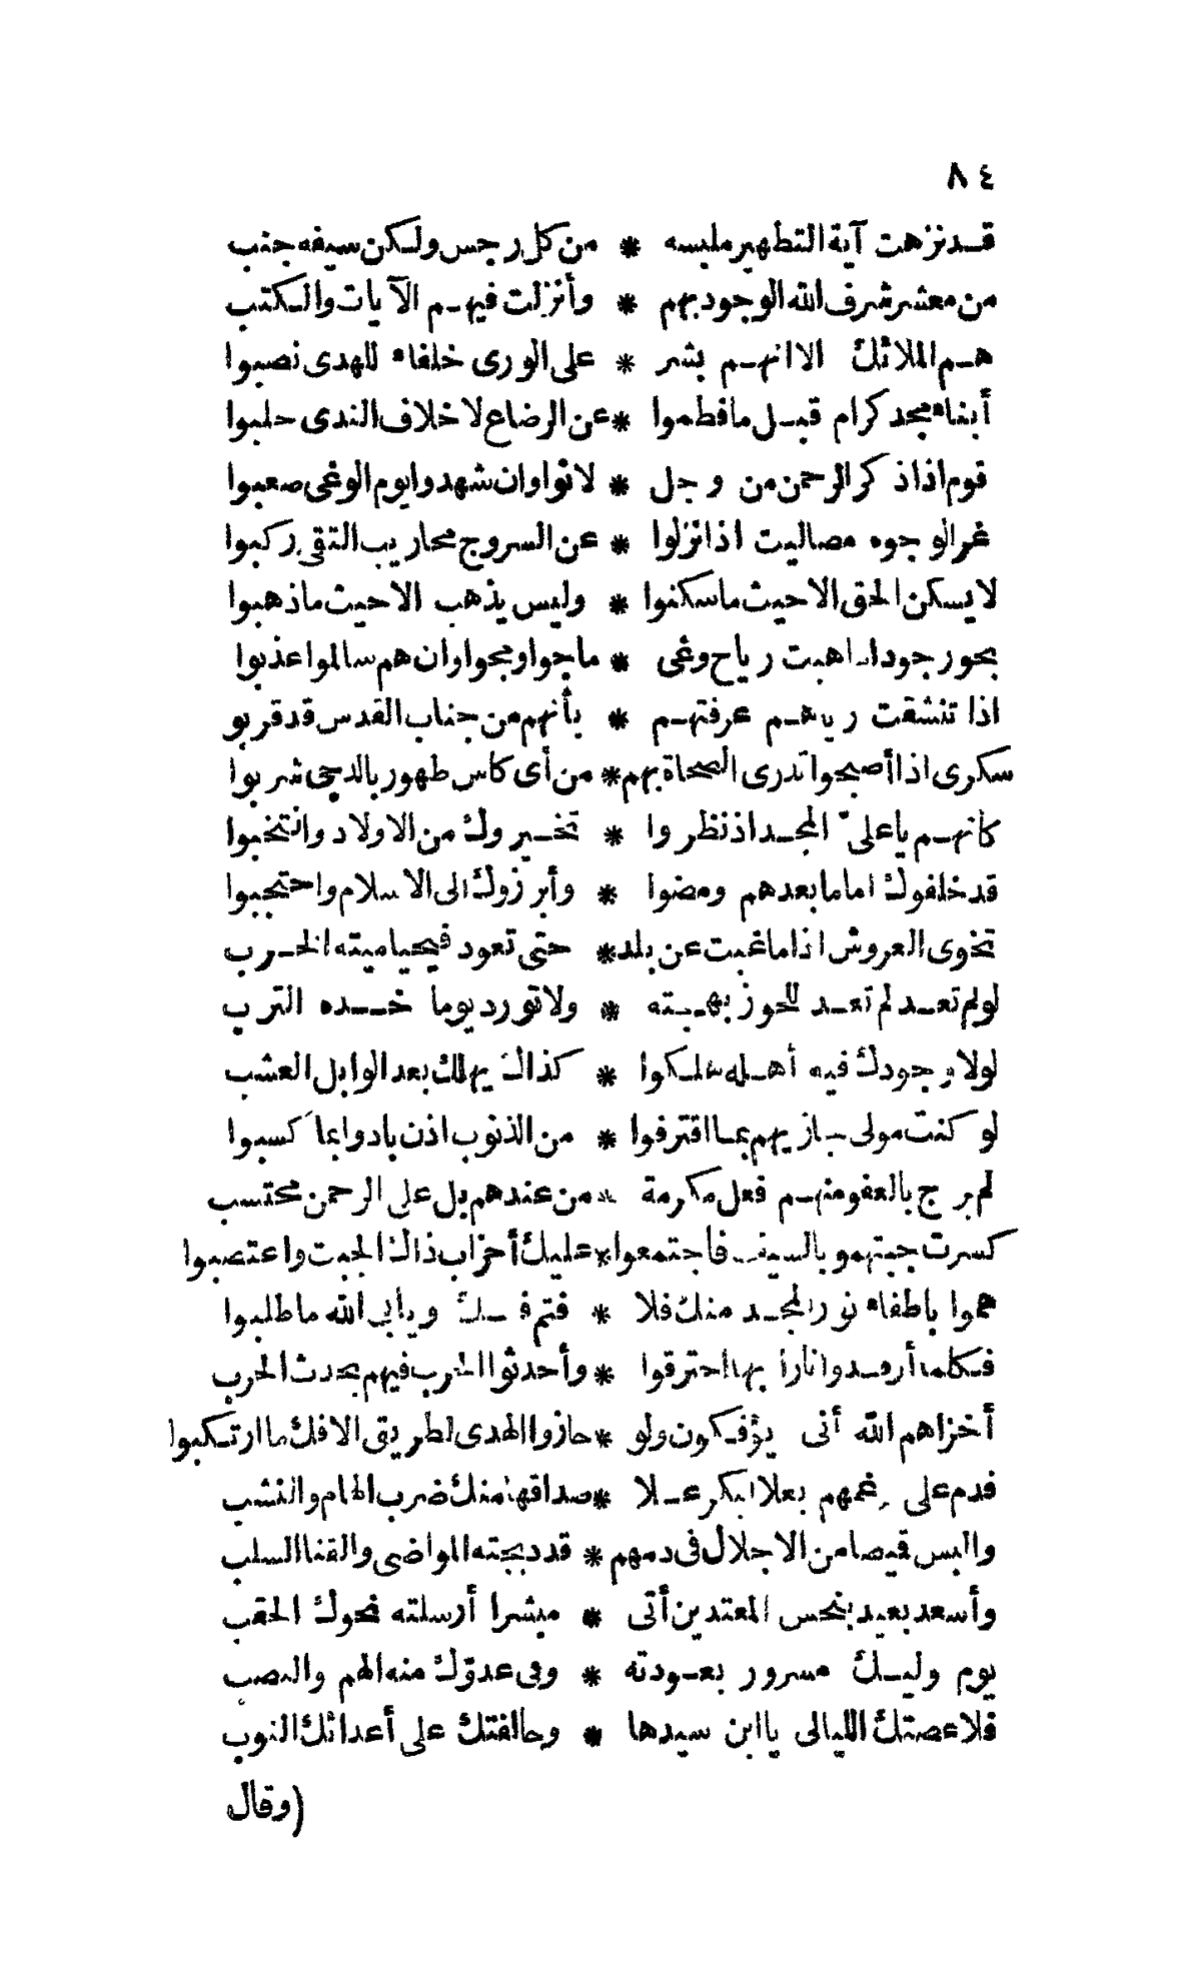 ٨٤
قد نزهت آية التطهير ملبسه * من كل رجس ولكن سيفه جنب
من معشر شرف الله الوجود بهم * وأنزلت فيهم الآيات والكتب
هم الملائك الا انهم بشر * على الورى خلفاء للهدى نصبوا
أبناء مجد كرام قبل ما فطموا * عن الرضاع لاخلاف الندى حلبوا
قوم اذا ذكر الرحمن من وجل * لانوا وان شهدوا يوم الوغى صعبوا
غر الوجوه مصاليت اذا نزلوا * عن السروج محاريب التقى ركبوا
لا يسكن الحق الا حيث ما سكنوا * وليس يذهب الا حيث ما ذهبوا
بحور جود اذا هبت رياح وغى * ماجوا ومجوا وان هم سالموا عذبوا
اذا تنشقت رياهم عرفتهم * بأنهم من جناب القدس قد قربو
سكرى اذا أصبحوا تدرى الصحاة بهم * من أى كاس طهور بالدجى شربوا
كانهم يا علىّ المجد اذ نظروا * تخيروك من الاولاد وانتخبوا
قد خلفوك اماما بعدهم ومضوا * وأبرزوك الى الاسلام واحتجبوا
تخوى العروش اذا ما غبت عن بلد * حتى تعود فيحيا ميته الخرب
لو لم تعد لم تعد للحوز بهجته * ولا تورد يوما خده الترب
لولا وجودك فيه أهله هلكوا * كذاك يهلك بعد الوابل العشب
لو كنت مولى يجازيهم بما اقترفوا * من الذنوب اذن بادوا بما كسبوا
لم يرج بالعفو منهم فعل مكرمة * من عندهم بل على الرحمن محتسب
كسرت جبتهمو بالسيف فاجتمعوا * عليك أحزاب ذاك الجبت واعتصبوا
هموا باطفاء نور المجد منك فلا * فتم فيك ويأبى الله ما طلبوا
فكلما أوقدوا نارا بها احترقوا * وأحدثوا الحرب فيهم يحدث الحرب
أخزاهم الله أنى يؤفكون ولو * حازوا الهدى لطريق الافك ما ارتكبوا
فدم على رغمهم بعلا لبكر علا * صداقها منك ضرب الهام والنشب
والبس قميصا من الاجلال فى دمهم * قد دبجته المواضى والقنا السلب
وأسعد بعيد بنحس المعتدين أتى * مبشرا أرسلته نحوك الحقب
يوم وليك مسرور بعودته * وفى عدوّك منه الهم والنصب
فلا عصتك الليالى يا ابن سيدها * وحالفتك على أعدائك النوب
(وقال